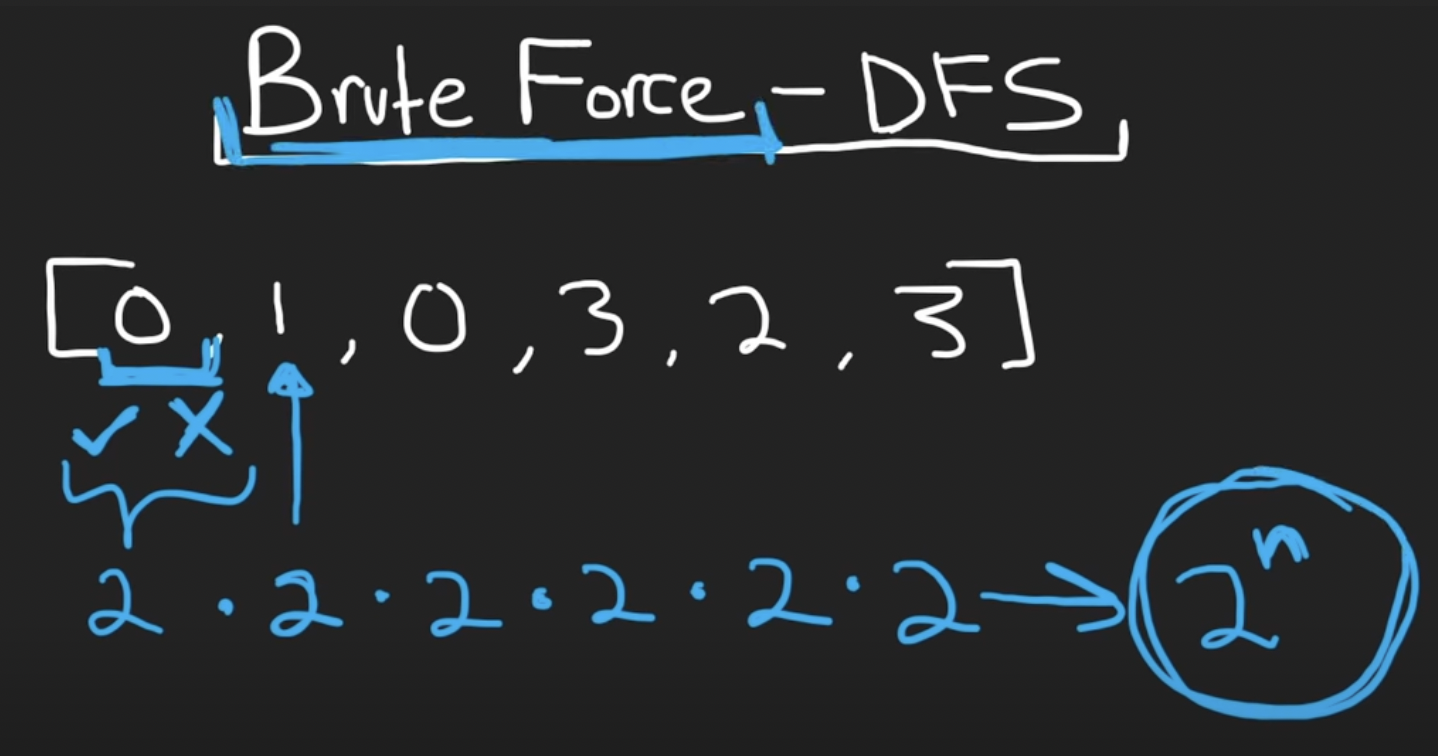 Brute Force - DFS
[0, 1, 0, 3, 2, 3]
✓ X
2 · 2 · 2 · 2 · 2 · 2 → 2ⁿ